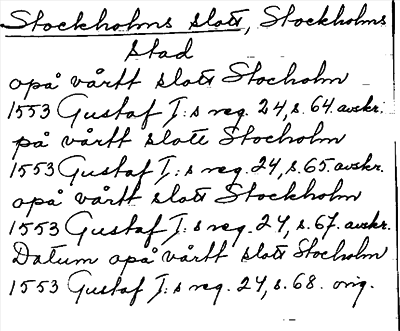 Stockholms slott, Stockholms
stad
opå vårtt slott Stocholm
1553 Gustaf I:s reg. 24, s. 64. avskr.
på vårtt slott Stocholm
1553 Gustaf I:s reg. 24, s. 65. avskr.
opå vårtt slott Stockholm
1553 Gustaf I:s reg. 24, s. 67. avskr.
Datum opå vårtt slott Stocholm
1553 Gustaf I:s reg. 24, s. 68. orig.